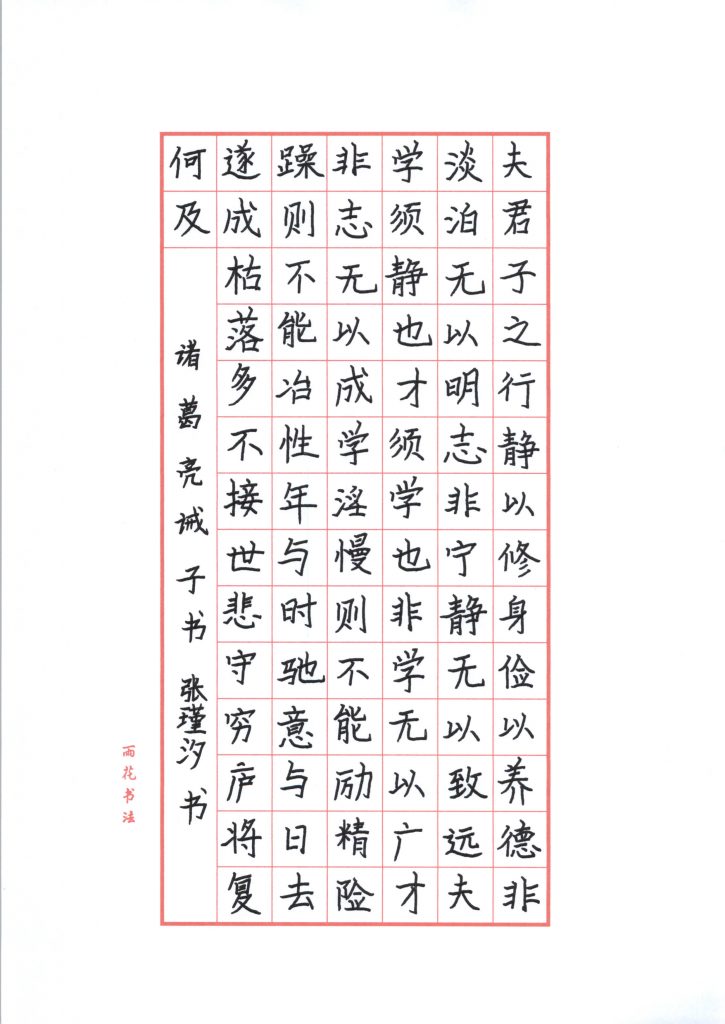 夫君子之行静以修身俭以养德非
淡泊无以明志非宁静无以致远夫
学须静也才须学也非学无以广才
非志无以成学淫慢则不能励精险
躁则不能冶性年与时驰意与日去
遂成枯落多不接世悲守穷庐将复
何及
诸葛亮诫子书 张瑾汐书
雨花书法